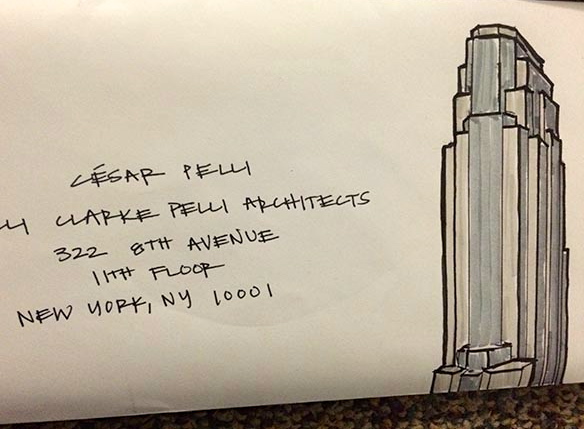 CÉSAR PELLI
CLARKE PELLI ARCHITECTS
322 8TH AVENUE
11TH FLOOR
NEW YORK, NY 10001